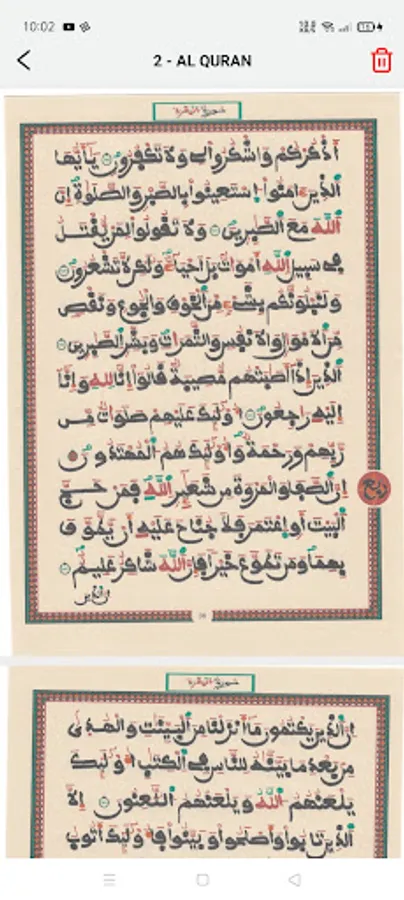 10:02
2 - AL QURAN
سورة البقرة
أذكركم واشكروا لي ولا تكفرون يأيها
الذين ءامنوا استعينوا بالصبر والصلوة إن
الله مع الصبرين ولا تقولوا لمن يقتل
في سبيل الله أموات بل أحياء ولكن لا تشعرون
ولنبلونكم بشيء من الخوف والجوع ونقص
من الأموال والأنفس والثمرات وبشر الصبرين
الذين إذا أصبتهم مصيبة قالوا إنا لله وإنا
إليه رجعون أولئك عليهم صلوات من
ربهم ورحمة وأولئك هم المهتدون
إن الصفا والمروة من شعئر الله فمن حج
ربع
البيت أو اعتمر فلا جناح عليه أن يطوف
بهما ومن تطوع خيرا فإن الله شاكر عليم
إن الذين
سورة البقرة
إن الذين يكتمون ما أنزلنا من البينت والهدى
من بعد ما بينه للناس في الكتب أولئك
يلعنهم الله ويلعنهم اللعنون إلا
الذين تابوا وأصلحوا وبينوا فأولئك أتوب